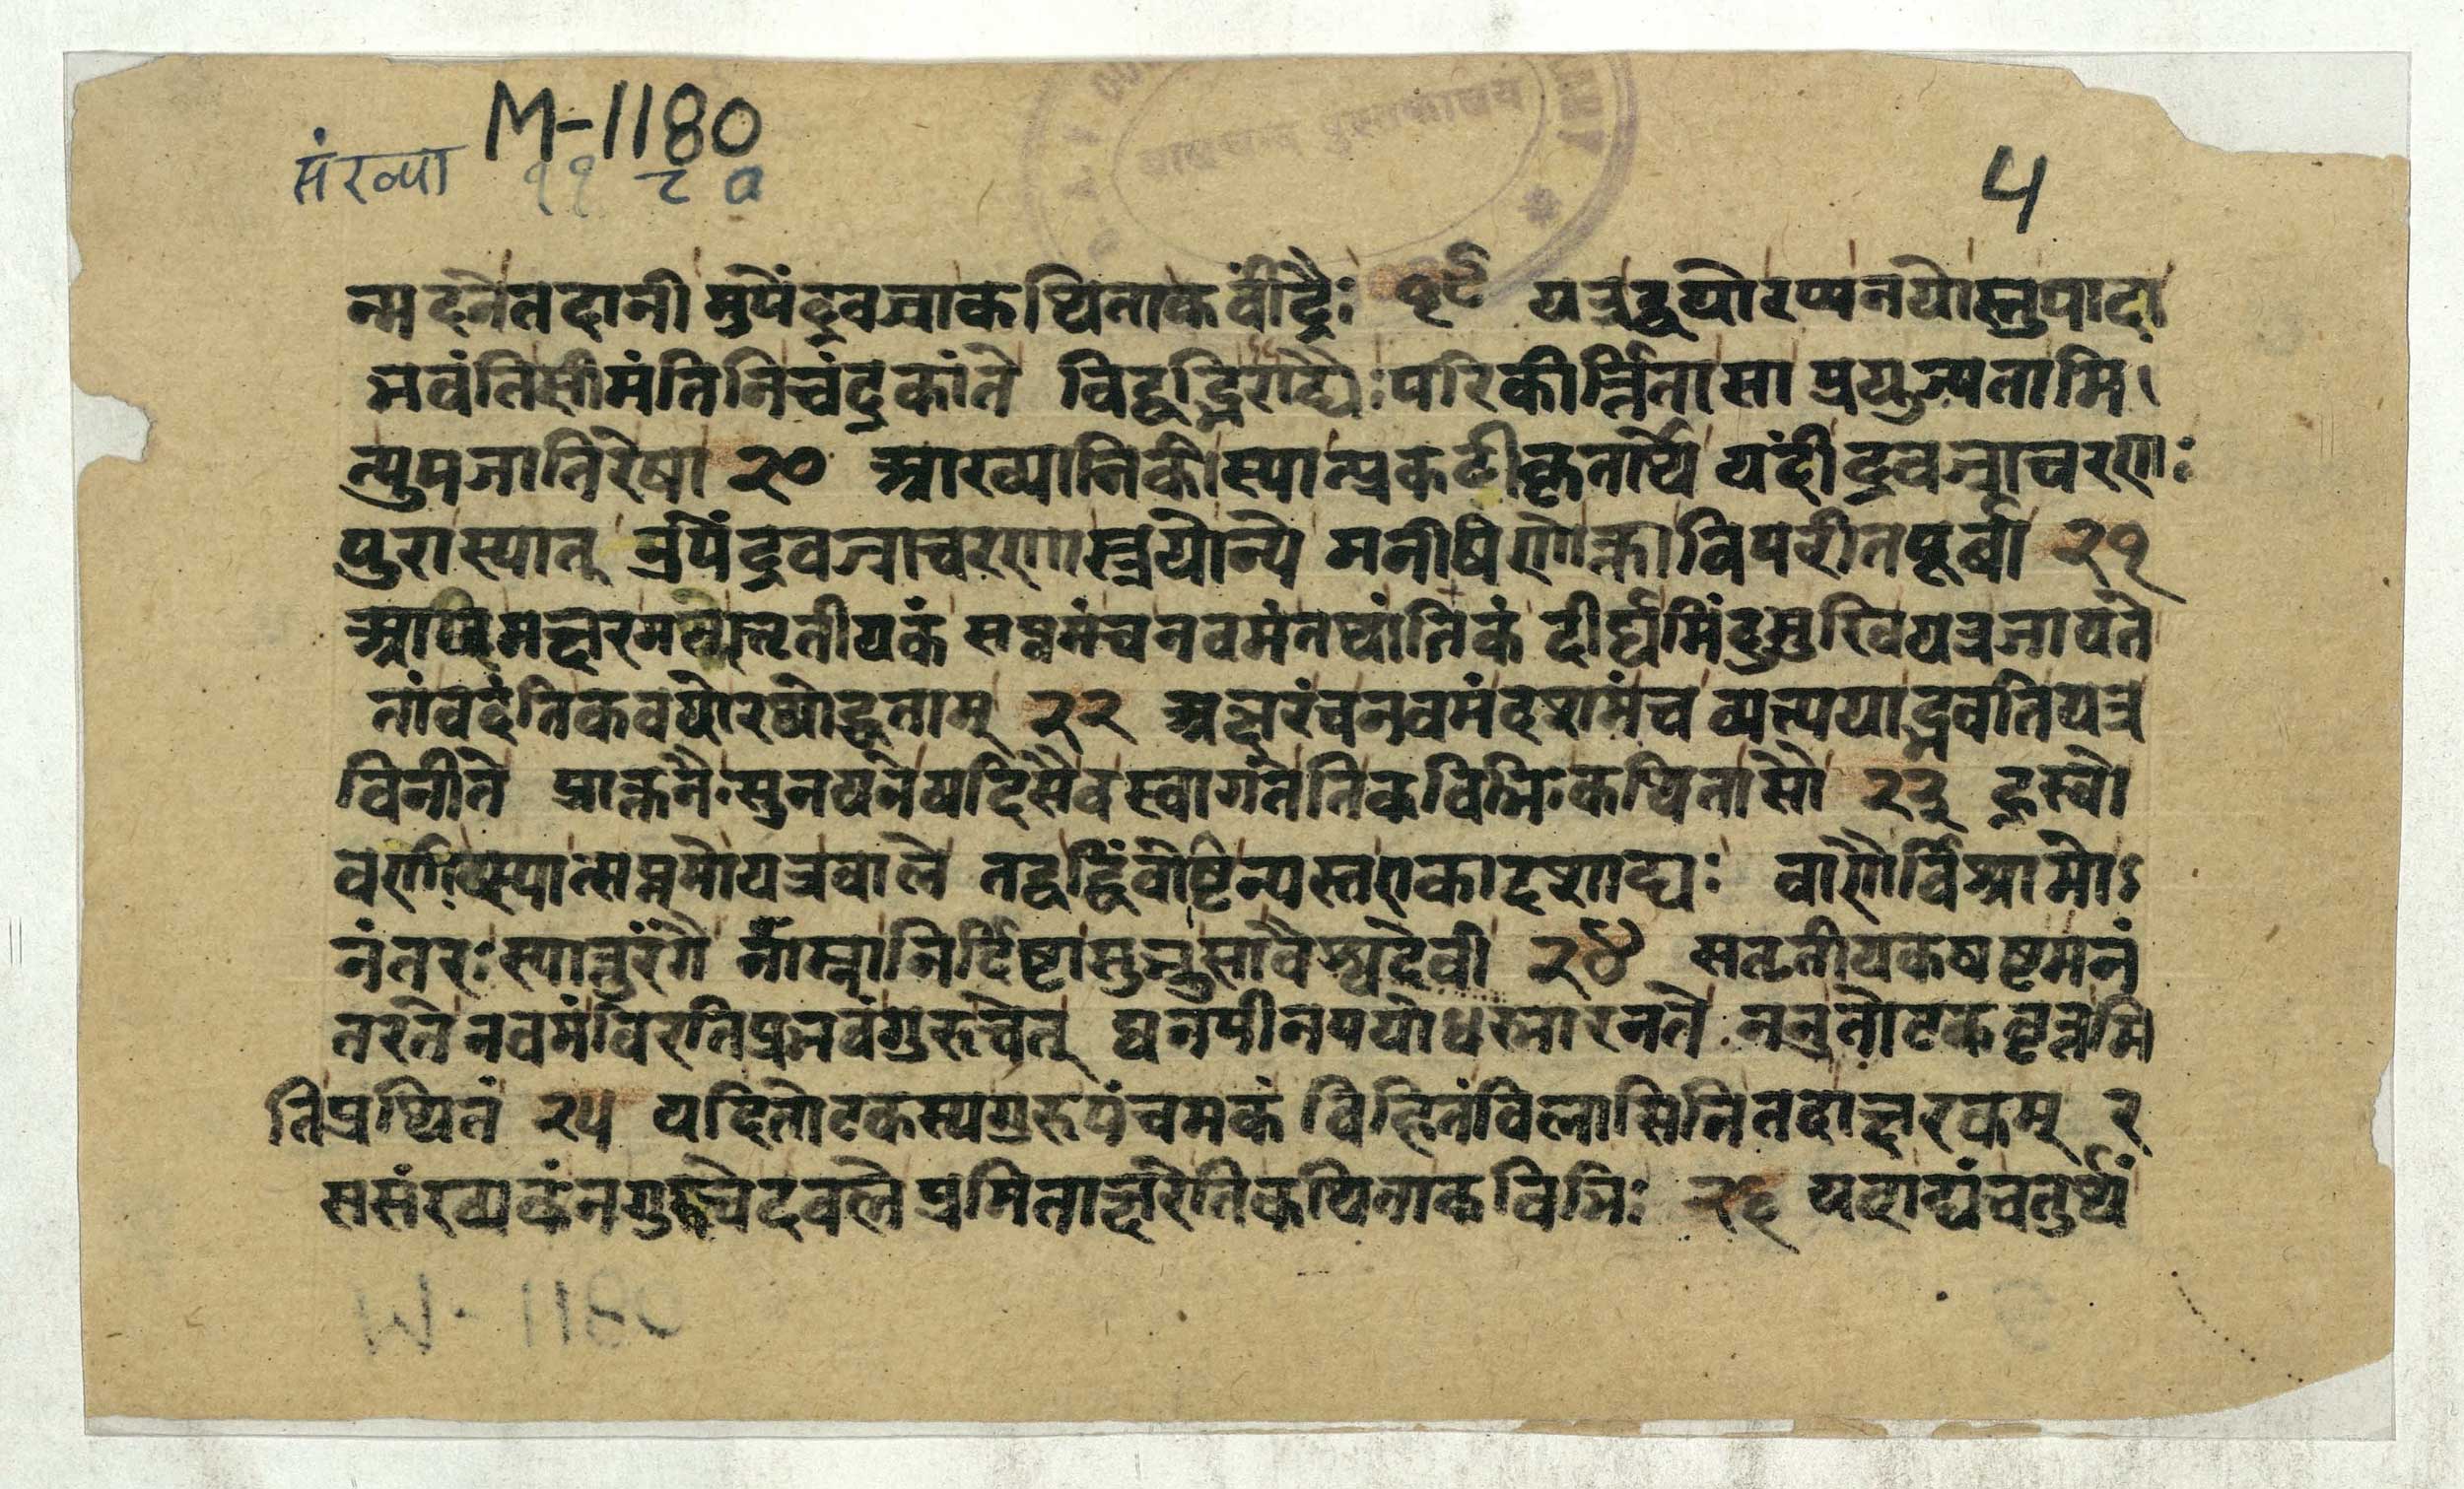 M-1180
संख्या ११८०
4
न्मदनेतदानीमुपेंद्रवज्राकथिताकवींद्रैः १९ यत्रद्वयोरप्यनयोस्तुपादा
भवंतिसीमंतिनिचंद्रकांते विद्वद्भिराद्यैःपरिकीर्त्तितासा प्रयुज्यतामि
त्युपजातिरेषा २० आख्यातिकीस्यात्प्रकटीकृतार्थे यदींद्रवज्राचरणः
पुरास्यात् त्रपेंद्रवज्राचरणास्त्रयोन्ये मनीषिणोक्ताविपरीतपूर्वा २१
आद्यमक्षरमतस्तृतीयकं सप्तमंचनवमंतथांतिकं दीर्घमिंदुमुखियत्रजायते
तांवदंतिकवयोरथोद्धताम् २२ अक्षरंचनवमंदशमंच व्यत्ययाद्भवतियत्र
विनीते प्राक्तनैःसुनयनेयदिसैव स्वागतेतिकविभिःकथितासौ २३ ह्रस्वो
वर्णःस्यात्सप्तमोयत्रबाले तद्वद्बिंबोष्टिन्यस्तएकादशाद्यः बाणैर्विश्रामोऽ
नंतरःस्यात्तुरंगै र्नाम्नानिर्दिष्टासुभ्रुसावैश्वदेवी २४ सतृतीयकषष्टमनं
तरतेनवमंविरतिप्रभवंगुरुचेत् घनपीनपयोधरभारनते ननुतोटकवृत्तमि
तिप्रथितं २५ यदितोटकस्यगुरुपंचमकं विहितंविलासिनितदाक्षरकम् र
ससंख्यकंनगुरुचेदबले प्रमिताक्षरेतिकथिताकविभिः २६ यदाद्यंचतुर्थं